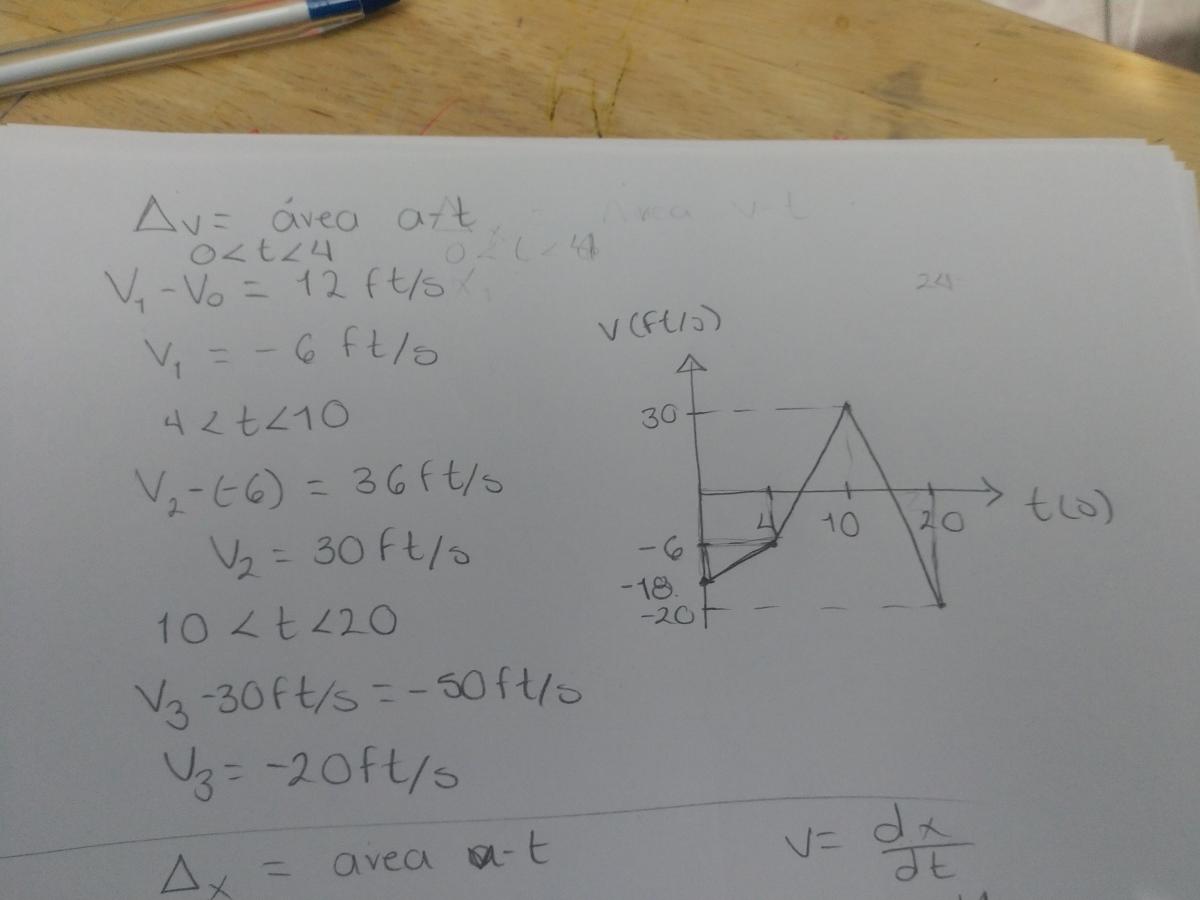 Δv = área a-t
0<t<4
V₁-V₀ = 12 ft/s
V₁ = -6 ft/s
4<t<10
V₂-(-6) = 36 ft/s
V₂ = 30 ft/s
10<t<20
V₃-30ft/s = -50ft/s
V₃ = -20ft/s
24
v(ft/s)
30
4 10 20
t(s)
-6
-18
-20
Δx = área a-t
v = dx/dt